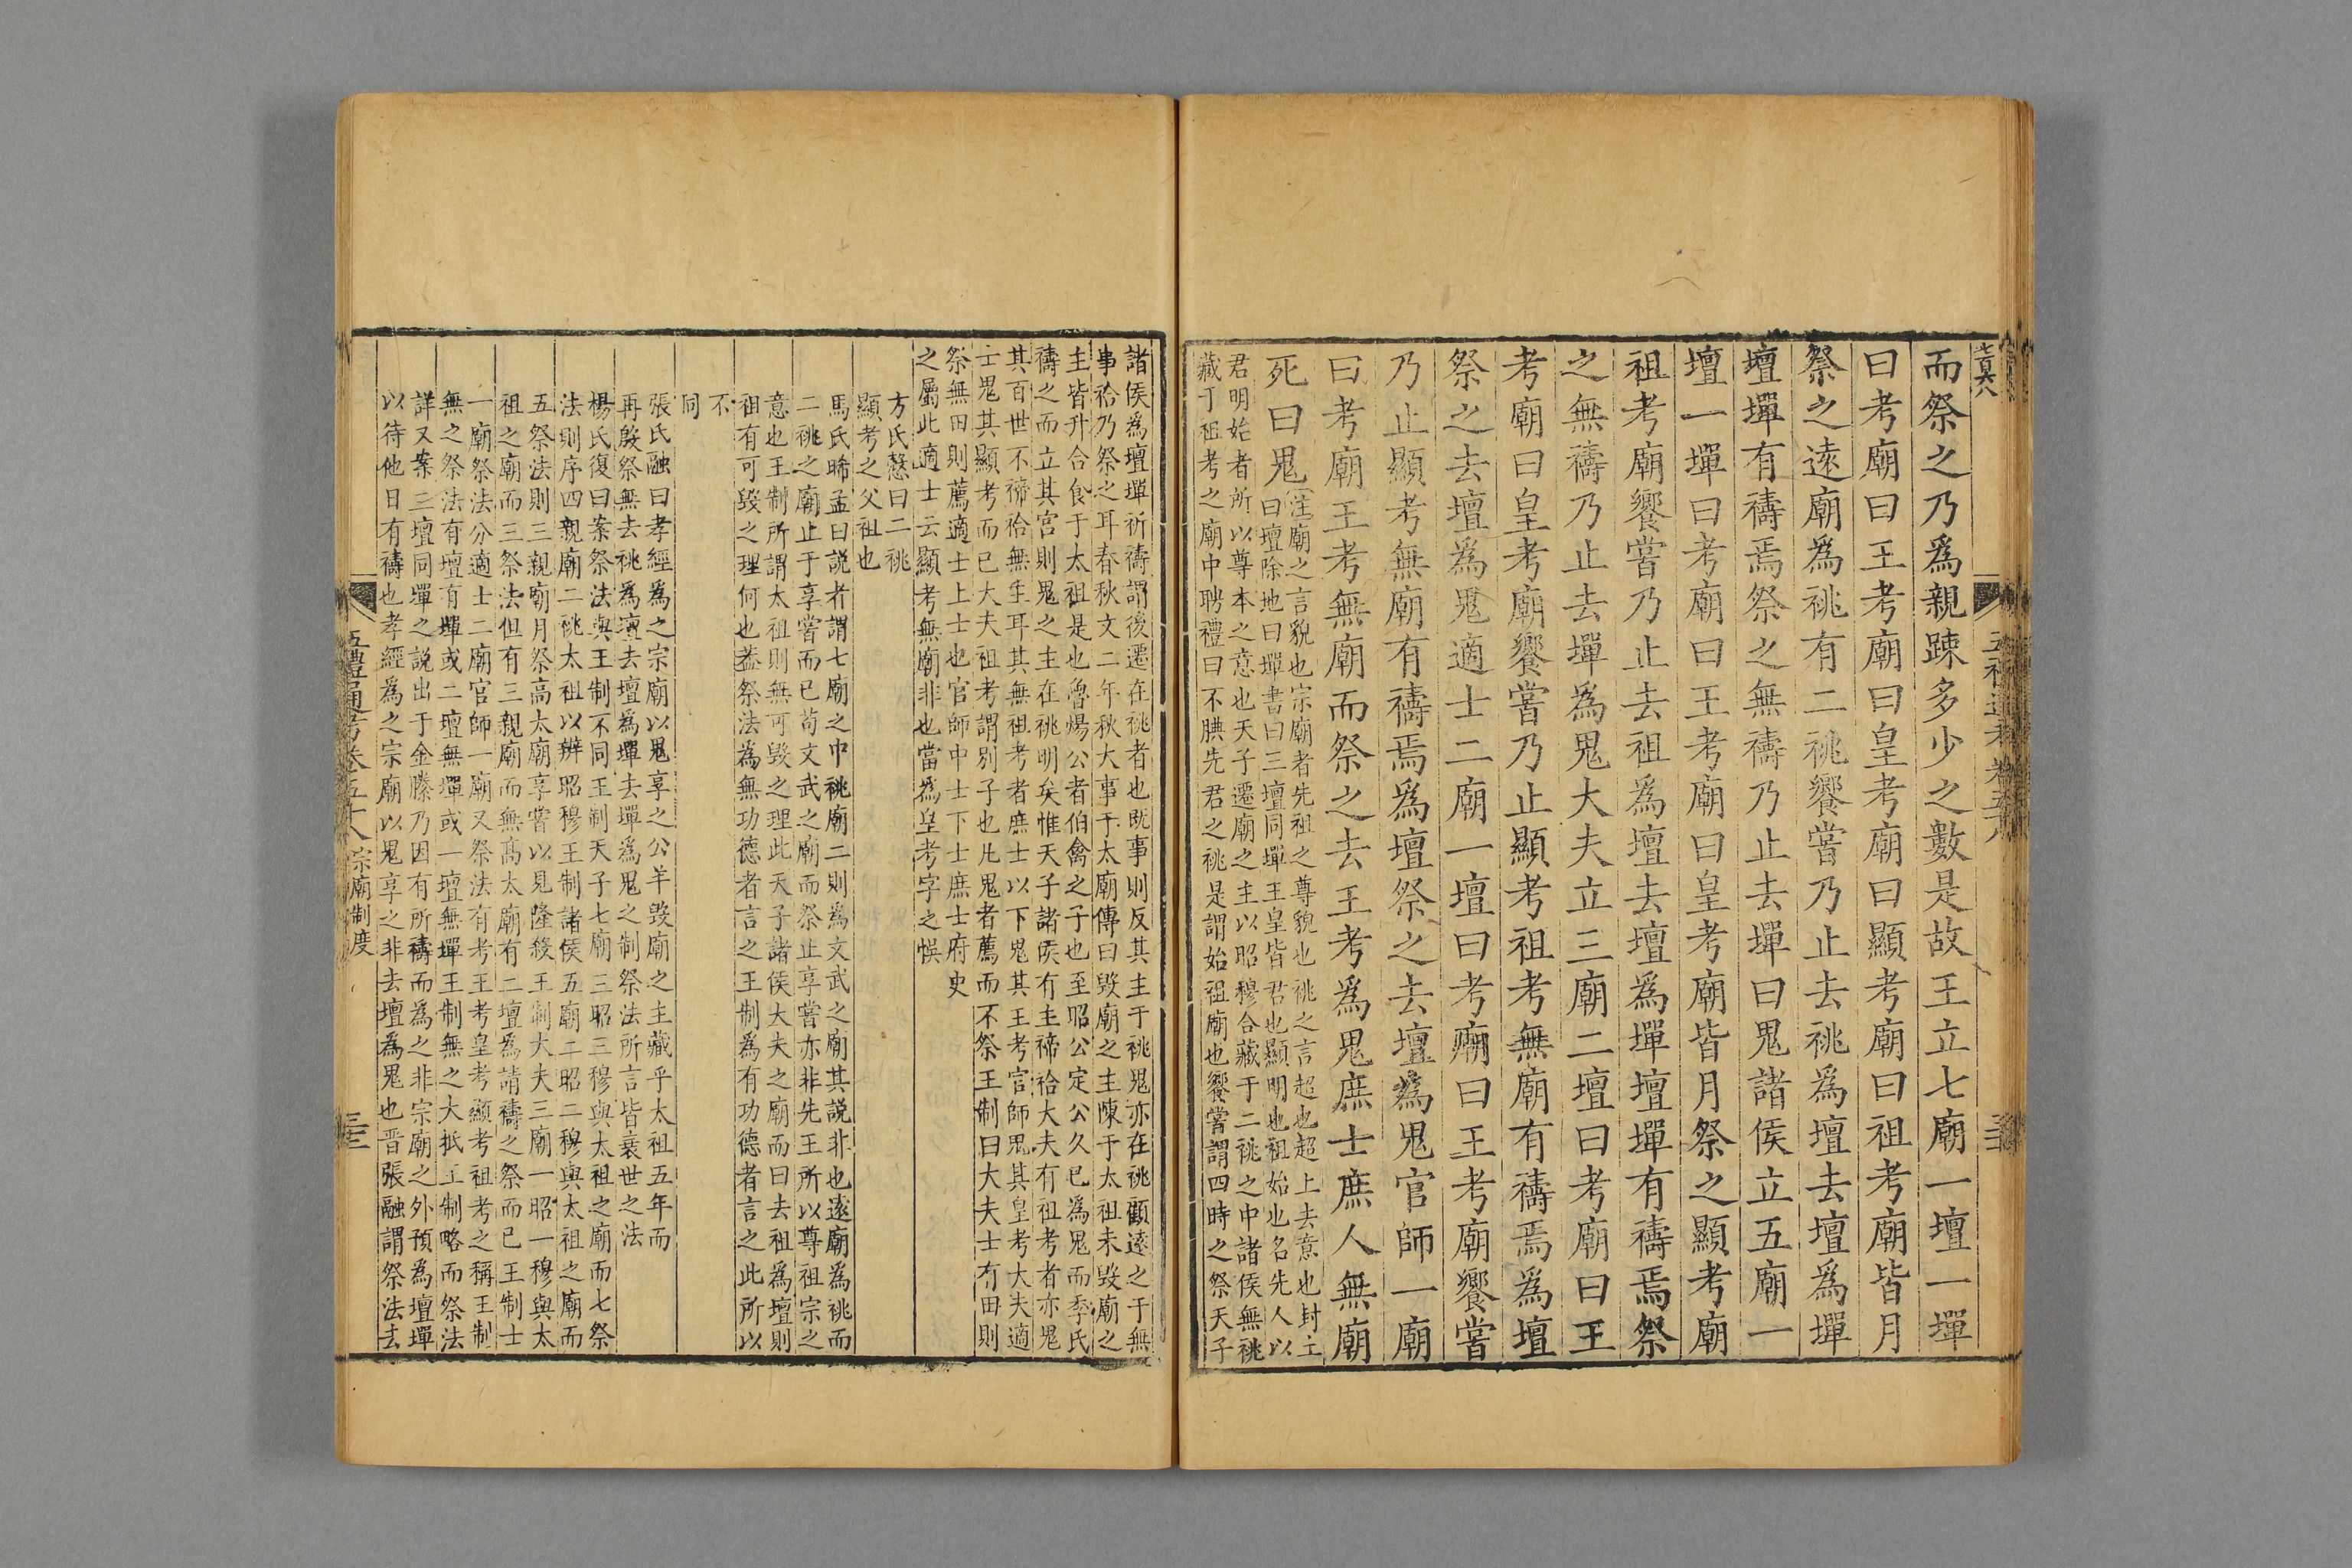 而祭之乃爲親疎多少之數是故王立七廟一壇一墠
曰考廟曰王考廟曰皇考廟曰顯考廟曰祖考廟皆月
祭之遠廟爲祧有二祧饗嘗乃止去祧爲壇去壇爲墠
壇墠有禱焉祭之無禱乃止去墠曰鬼諸侯立五廟一
壇一墠曰考廟曰王考廟曰皇考廟皆月祭之顯考廟
祖考廟饗嘗乃止去祖爲壇去壇爲墠壇墠有禱焉祭
之無禱乃止去墠爲鬼大夫立三廟二壇曰考廟曰王
考廟曰皇考廟饗嘗乃止顯考祖考無廟有禱焉爲壇
祭之去壇爲鬼適士二廟一壇曰考廟曰王考廟饗嘗
乃止顯考無廟有禱焉爲壇祭之去壇爲鬼官師一廟
曰考廟王考無廟而祭之去王考爲鬼庶士庶人無廟
死曰鬼
注廟之言貌也宗廟者先祖之尊貌也祧之言超也超上去意也封土
曰壇除地曰墠書曰三壇同墠王皇皆君也顯明也祖始也名先人以
君明始者所以尊本之意也天子遷廟之主以昭穆合藏于二祧之中諸侯無祧
藏于祖考之廟中聘禮曰不腆先君之祧是謂始祖廟也饗嘗謂四時之祭天子
諸侯爲壇墠祈禱謂後遷在祧者也既事則反其主于祧鬼亦在祧顧遠之于無
事祫乃祭之耳春秋文二年秋大事于太廟傳曰毀廟之主陳于太祖未毀廟之
主皆升合食于太祖是也魯煬公者伯禽之子也至昭公定公久已爲鬼而季氏
禱之而立其宮則鬼之主在祧明矣惟天子諸侯有主禘祫大夫有祖考者亦鬼
其百世不禘祫無主耳其無祖考者庶士以下鬼其王考官師鬼其皇考大夫適
士鬼其顯考而已大夫祖考謂別子也凡鬼者薦而不祭王制曰大夫士有田則
祭無田則薦適士上士也官師中士下士庶士府史
之屬此適士云顯考無廟非也當爲皇考字之悞
方氏慤曰二祧
顯考之父祖也
馬氏晞孟曰説者謂七廟之中祧廟二則爲文武之廟其説非也遠廟爲祧而
二祧之廟止于享嘗而已苟文武之廟而祭止享嘗亦非先王所以尊祖宗之
意也王制所謂太祖則無可毀之理此天子諸侯大夫之廟而曰去祖爲壇則
祖有可毀之理何也葢祭法為無功德者言之王制為有功德者言之此所以
不
同
張氏融曰孝經為之宗廟以鬼享之公羊毀廟之主藏乎太祖五年而
再殷祭無去祧爲壇去壇爲墠去墠爲鬼之制祭法所言皆衰世之法
楊氏復曰案祭法與王制不同王制天子七廟三昭三穆與太祖之廟而七祭
法則序四親廟二祧太祖以辨昭穆王制諸侯五廟二昭二穆與太祖之廟而
五祭法則三親廟月祭高太廟享嘗以見隆殺王制大夫三廟一昭一穆與太
祖之廟而三祭法但有三親廟而無高太廟有二壇爲請禱之祭而已王制士
一廟祭法分適士二廟官師一廟又祭法有考王考皇考顯考祖考之稱王制
無之祭法有壇有墠或二壇無墠或一壇無墠王制無之大抵王制略而祭法
詳又案三壇同墠之説出于金縢乃因有所禱而為之非宗廟之外預為壇墠
以待他日有禱也孝經為之宗廟以鬼享之非去壇為鬼也晋張融謂祭法去
五禮通考卷五十八宗廟制度